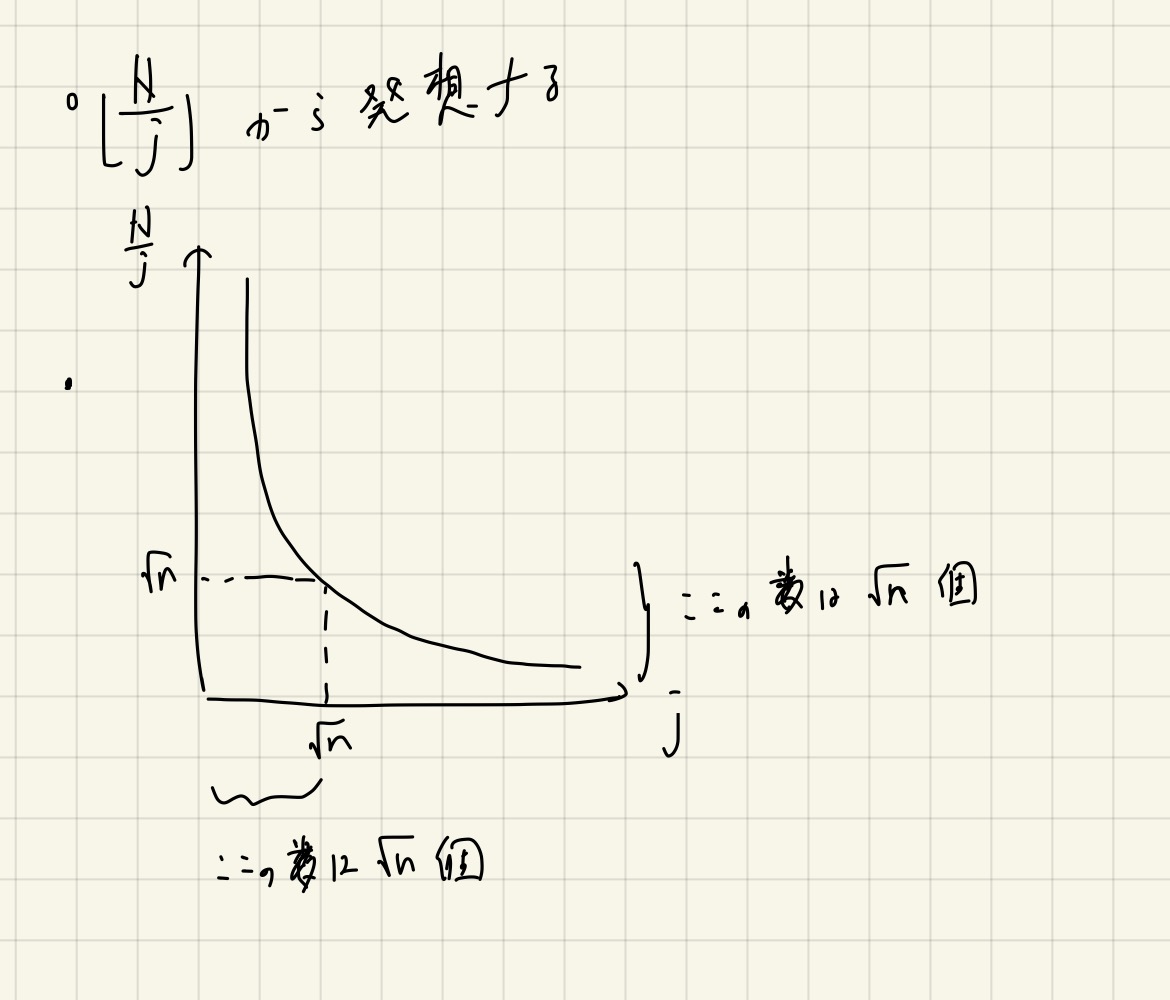 ⌊N/j⌋ から発想する
N/j
√n
ここの数は √n 個
j
√n
ここの数は √n 個